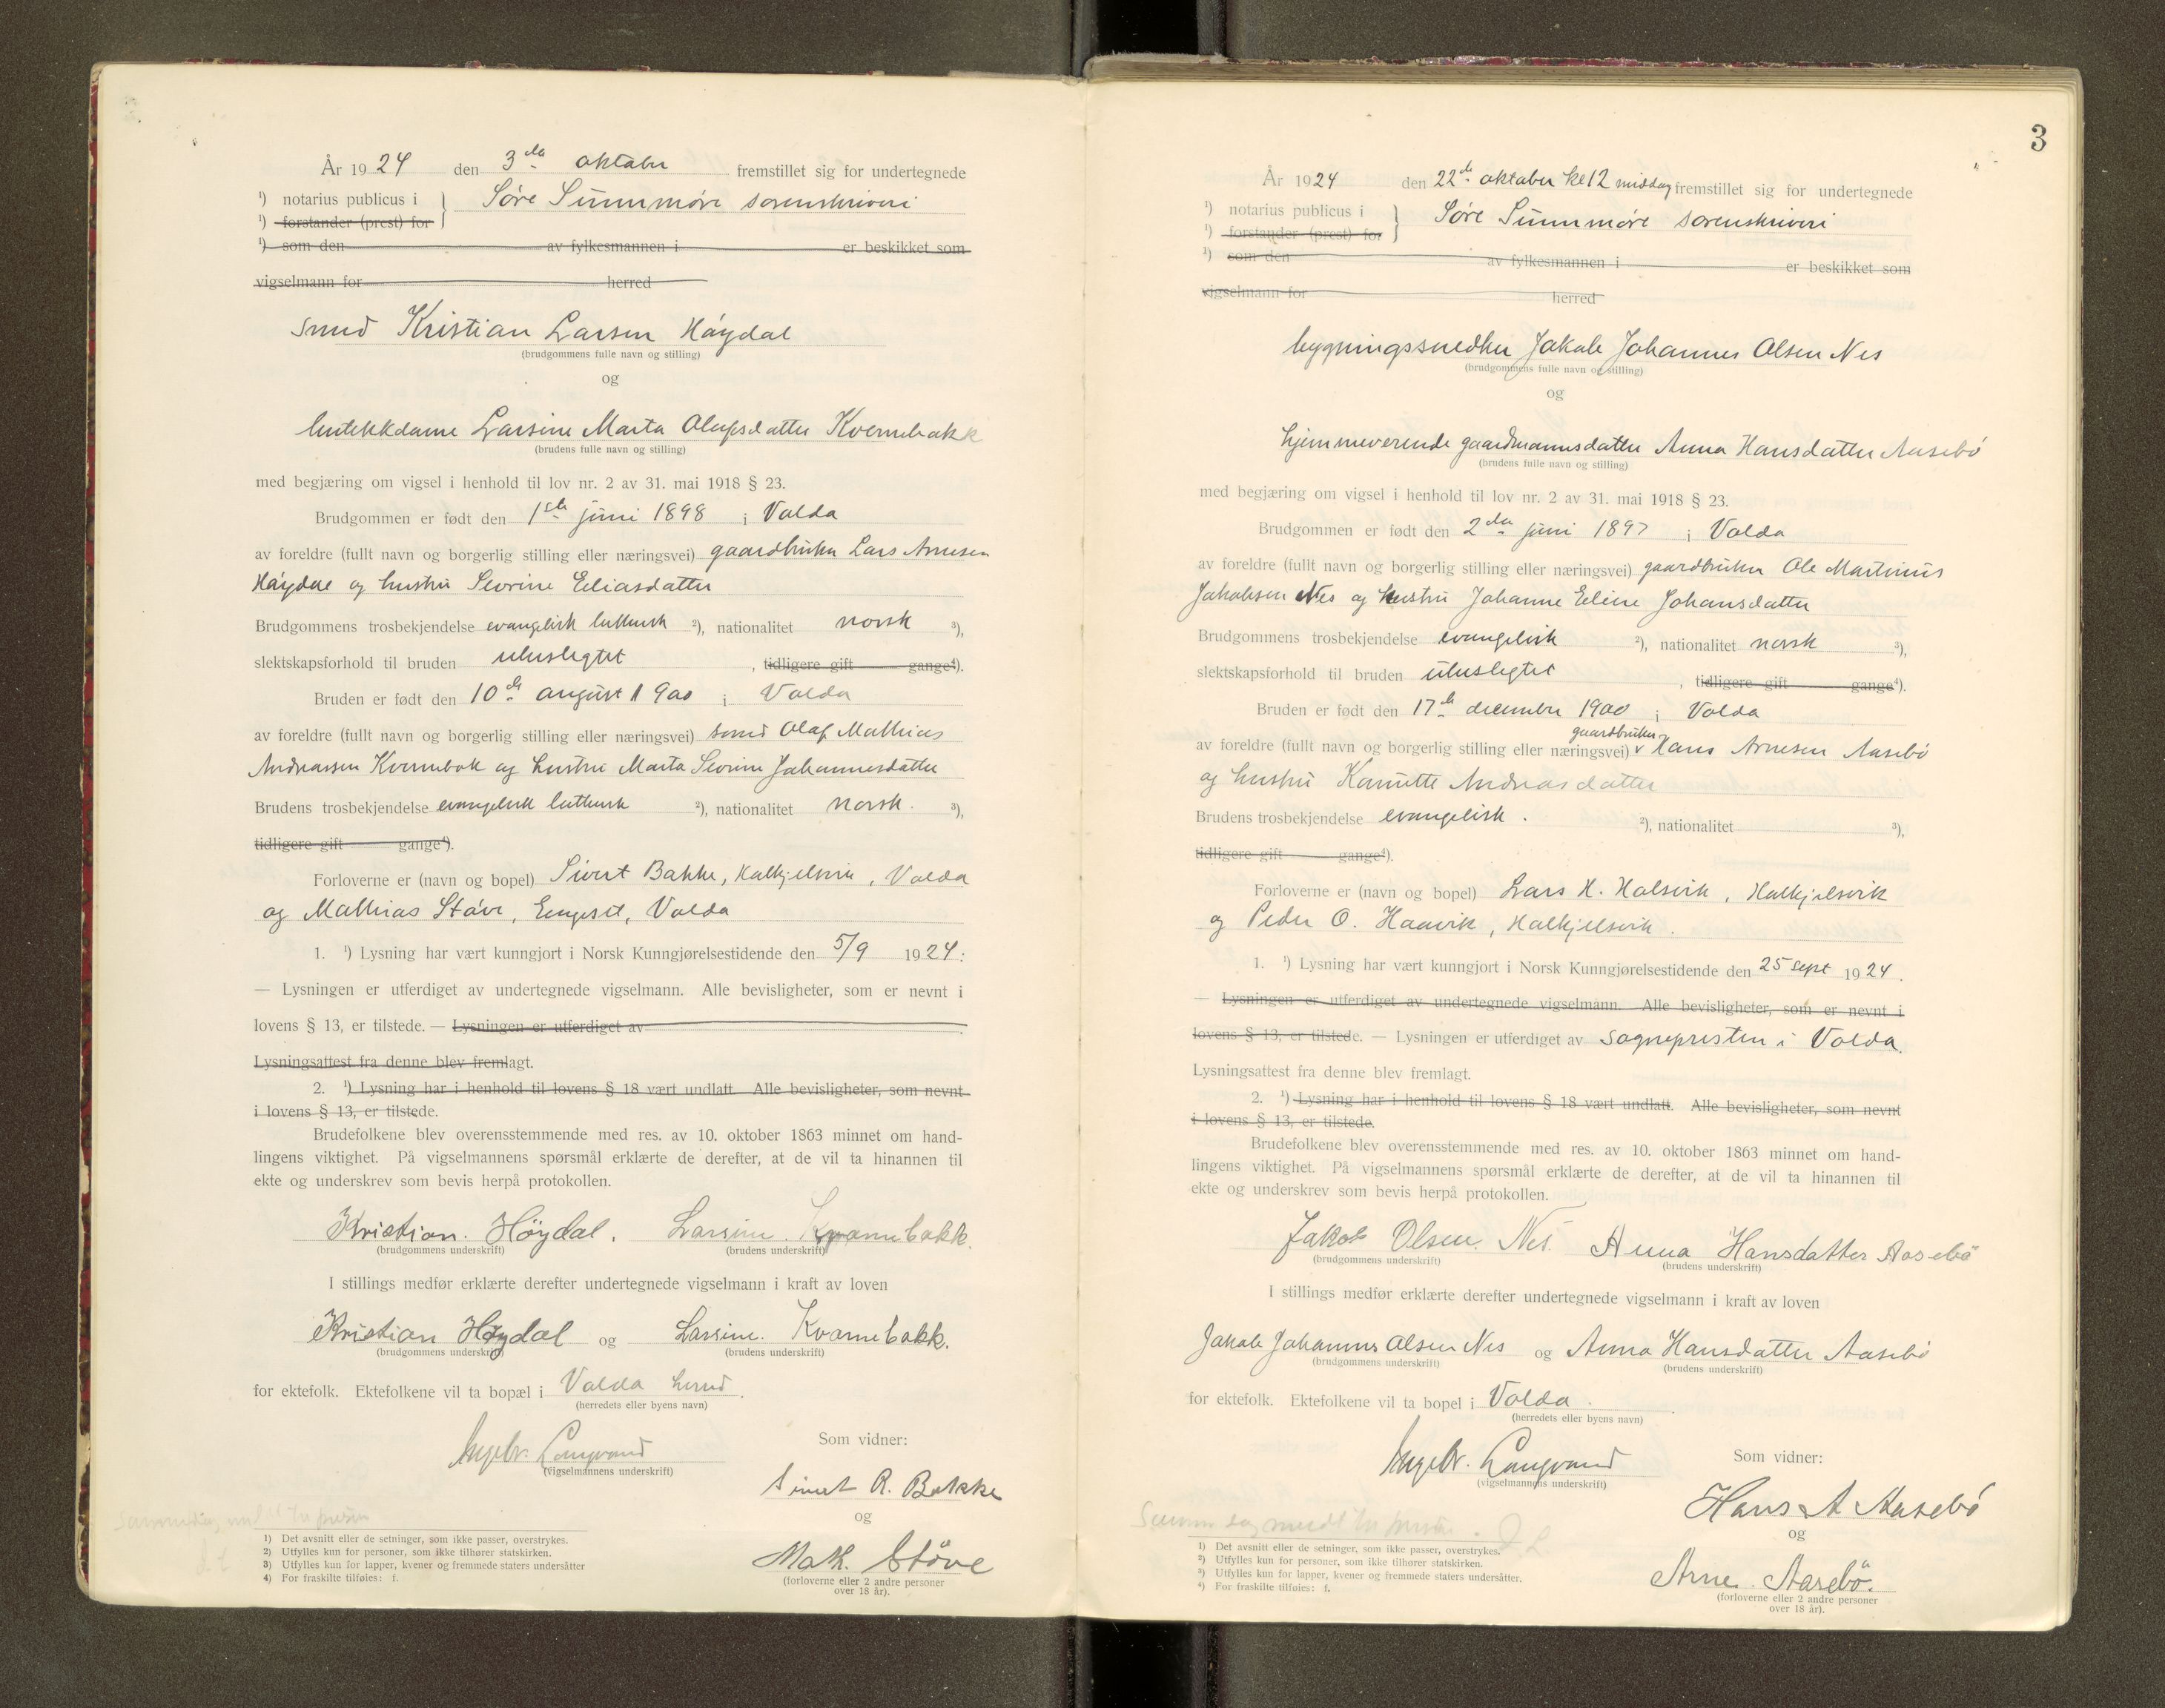 År 1924 den 3die oktober fremstillet sig for undertegnede
¹) notarius publicus i
Søre Sunnmøre sorenskriveri
¹) forstander (prest) for
¹) som den av fylkesmannen i er beskikket som
vigselmann for herred
smed Kristian Larsen Høydal
(brudgommens fulle navn og stilling)
og
butikkdame Larsine Marta Olafsdatter Kvernebakk
(brudens fulle navn og stilling)
med begjæring om vigsel i henhold til lov nr. 2 av 31. mai 1918 § 23.
Brudgommen er født den 1ste juni 1898 i Volda
av foreldre (fullt navn og borgerlig stilling eller næringsvei) gaardbruker Lars Arnesen
Høydal og hustru Severine Eliasdatter
Brudgommens trosbekjendelse evangelisk luthersk ²), nationalitet norsk ³),
slektskapsforhold til bruden ubeslegtet , tidligere gift gange⁴).
Bruden er født den 10de august 1900 i Volda
av foreldre (fullt navn og borgerlig stilling eller næringsvei) smed Olaf Mathias
Andreassen Kvernebak og hustru Marta Severine Johannesdatter
Brudens trosbekjendelse evangelisk luthersk ²), nationalitet norsk. ³),
tidligere gift gange⁴).
Forloverne er (navn og bopel) Sivert Bakke, Halkjelsvik, Volda
og Mathias Støve, Engeset, Volda
1. ¹) Lysning har vært kunngjort i Norsk Kunngjørelsestidende den 5/9 1924:
— Lysningen er utferdiget av undertegnede vigselmann. Alle bevisligheter, som er nevnt i
lovens § 13, er tilstede. — Lysningen er utferdiget av
Lysningsattest fra denne blev fremlagt.
2. ¹) Lysning har i henhold til lovens § 18 vært undlatt Alle bevisligheter, som nevnt
i lovens § 13, er tilstede.
Brudefolkene blev overensstemmende med res. av 10. oktober 1863 minnet om hand-
lingens viktighet. På vigselmannens spørsmål erklærte de derefter, at de vil ta hinannen til
ekte og underskrev som bevis herpå protokollen.
Kristian. Höydal. Larsine. Kvamebakk.
(brudgommens underskrift) (brudens underskrift)
I stillings medfør erklærte derefter undertegnede vigselmann i kraft av loven
Kristian Høydal og Larsine. Kvamebakk.
(brudgommens underskrift) (brudens underskrift)
for ektefolk. Ektefolkene vil ta bopæl i Volda herred.
(herredets eller byens navn)
Ingebr. Langvand
(vigselmannens underskrift)
Som vidner:
Sivert R. Bakke
og
Math. Støve
(forloverne eller 2 andre personer
over 18 år).
1) Det avsnitt eller de setninger, som ikke passer, overstrykes.
2) Utfylles kun for personer, som ikke tilhører statskirken.
3) Utfylles kun for lapper, kvener og fremmede staters undersåtter
4) For fraskilte tilføies: f.
3
År 1924 den 22de oktober kl 12 middag fremstillet sig for undertegnede
¹) notarius publicus i
Søre Sunnmøre sorenskriveri
¹) forstander (prest) for
¹) som den av fylkesmannen i er beskikket som
vigselmann for herred
bygningssnedker Jakob Johannes Olsen Nes
(brudgommens fulle navn og stilling)
og
hjemmeverende gaardmannsdatter Anna Hansdatter Aasebø
(brudens fulle navn og stilling)
med begjæring om vigsel i henhold til lov nr. 2 av 31. mai 1918 § 23.
Brudgommen er født den 2den juni 1897 i Volda
av foreldre (fullt navn og borgerlig stilling eller næringsvei) gaardbruker Ole Martinus
Jakobsen Nes og hustru Johanne Eline Johansdatter
Brudgommens trosbekjendelse evangelisk ²), nationalitet norsk ³),
slektskapsforhold til bruden ubeslegtet , tidligere gift gange⁴).
Bruden er født den 17de december 1900 i Volda
gaardbruker
av foreldre (fullt navn og borgerlig stilling eller næringsvei) v Hans Arnesen Aasebø
og hustru Kanutte Andreasdatter
Brudens trosbekjendelse evangelisk. ²), nationalitet ³),
tidligere gift gange⁴).
Forloverne er (navn og bopel) Lars H. Halsvik, Halkjelsvik
og Peder O. Haavik, Halkjelsvik.
1. ¹) Lysning har vært kunngjort i Norsk Kunngjørelsestidende den 25 sept 1924.
— Lysningen er utferdiget av undertegnede vigselmann. Alle bevisligheter, som er nevnt i
lovens § 13, er tilstede. — Lysningen er utferdiget av sognepresten i Volda.
Lysningsattest fra denne blev fremlagt.
2. ¹) Lysning har i henhold til lovens § 18 vært undlatt. Alle bevisligheter, som nevnt
i lovens § 13, er tilstede.
Brudefolkene blev overensstemmende med res. av 10. oktober 1863 minnet om hand-
lingens viktighet. På vigselmannens spørsmål erklærte de derefter, at de vil ta hinannen til
ekte og underskrev som bevis herpå protokollen.
Jakob Olsen. Nes. Anna Hansdatter Aasebö
(brudgommens underskrift) (brudens underskrift)
I stillings medfør erklærte derefter undertegnede vigselmann i kraft av loven
Jakob Johannes Olsen Nes og Anna Hansdatter Aasebø
(brudgommens underskrift) (brudens underskrift)
for ektefolk. Ektefolkene vil ta bopel i Volda.
(herredets eller byens navn)
Ingebr. Langvand
(vigselmannens underskrift)
Som vidner:
Hans A Aasebø
og
Arne. Aasebö.
(forloverne eller 2 andre personer
over 18 år).
1) Det avsnitt eller de setninger, som ikke passer, overstrykes.
2) Utfylles kun for personer, som ikke tilhører statskirken.
3) Utfylles kun for lapper, kvener og fremmede staters undersåtter.
4) For fraskilte tilføies: f.